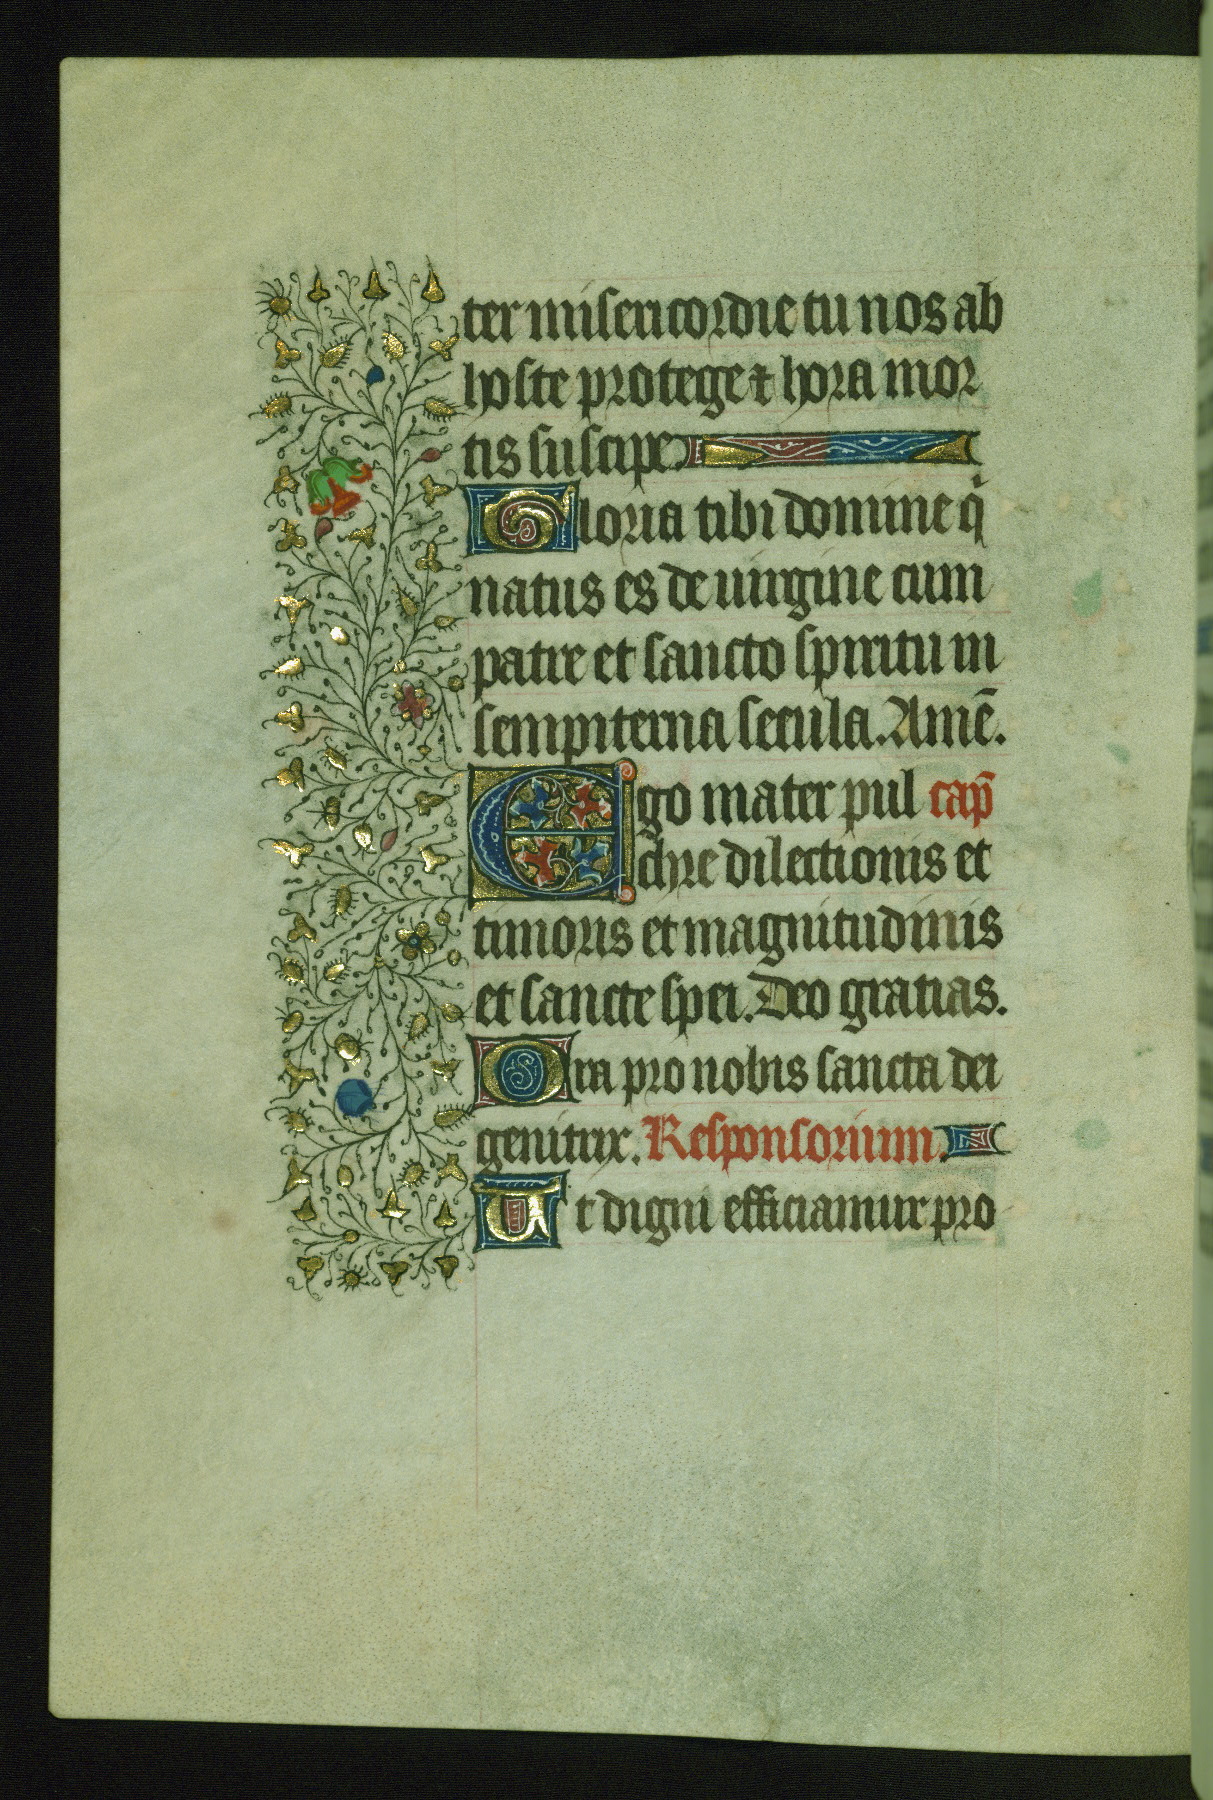 ter misericordie tu nos ab
hoste protege ⁊ hora mor
tis suscipe
Gloria tibi domine q̇
natus es de uirgine cum
patre et sancto spiritu in
sempiterna secula. Amē.
Ego mater pul cap̄
chre dilectionis et
timoris et magnitudinis
et sancte spei. Deo gratias.
Ora pro nobis sancta dei
genitrix. Responsorium.
Ut digni efficiamur pro